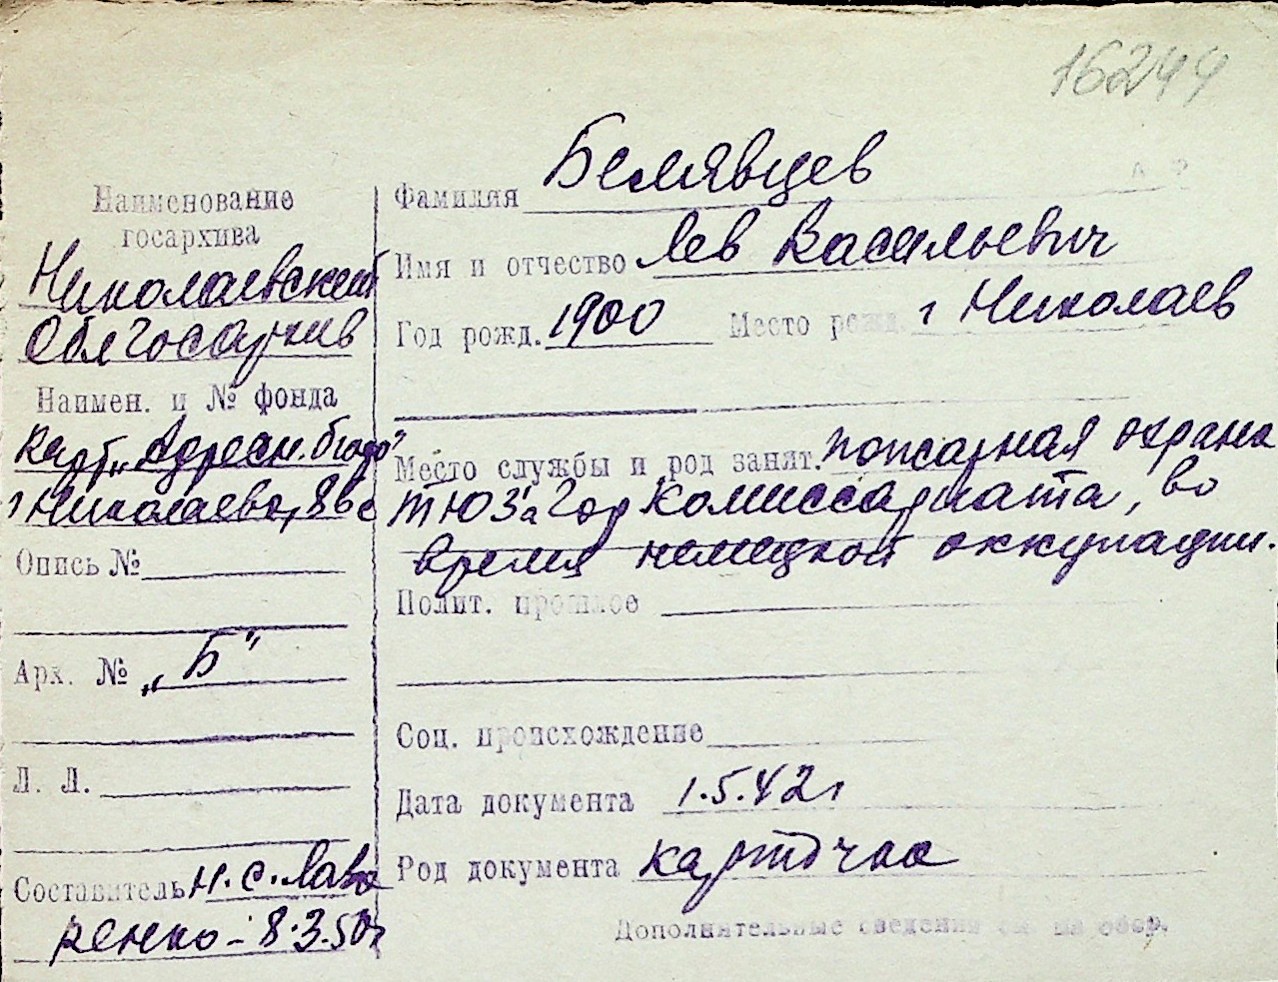 16244
Наименование
госархива
Николаевский
Облгосархив
Наимен. и № фонда
карт. „Адресн. бюро"
г Николаева,
Опись №
Арх. № „Б"
Л. Л.
Составитель Н. С. Лав
ренко - 8.3.50г
Фамилия Белявцев
Имя и отчество Лев Васильевич
Год рожд. 1900 Место рожд. г Николаев
Место службы и род занят. пожарная охрана
ТЮЗ'а Горкомиссариата, во
время немецкой оккупации.
Полит. прошлое
Соц. происхождение
Дата документа 1.5.42г
Род документа карточка
Дополнительные сведения см. на обор.